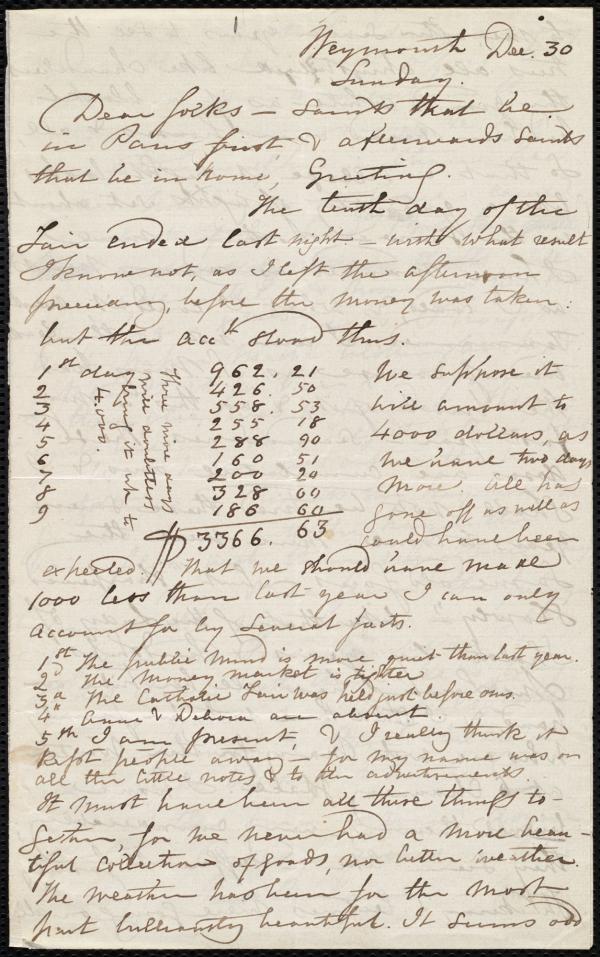 1
Weymouth Dec. 30
Sunday.
Dear folks – Saints that be
in Paris first & afterwards Saints
that be in Rome, Greeting.
The tenth day of the
Fair ended last night – with what result
I know not, as I left the afternoon
preceding, before the money was taken:
but the acct stood thus.
1st day 962. 21 We suppose it
2 426. 50 will amount to
3 558. 53 4000 dollars, as
4 255 18
5 288 90
6 160 51 we have two days
7 200 20 more. All has
8 328 00 gone off as well as
9 186 60 could have been
$3366. 63
These nine days
will doubtless
bring it up to
4.000.
expected. That we should have made
1000 less than last year I can only
account for by several facts.
1st The public mind is more quiet than last year.
2d The money market is tighter
3d The Catholic Fair was held just before ours.
4th Anne & Debora are absent.
5th I am present, & I really think it
kept people away – for my name was on
all the little notes & to the advertisements.
It must have been all these things to-
gether, for we never had a more beau-
tiful collection of goods, nor better weather.
The weather has been for the most
part brilliantly beautiful. It seems odd